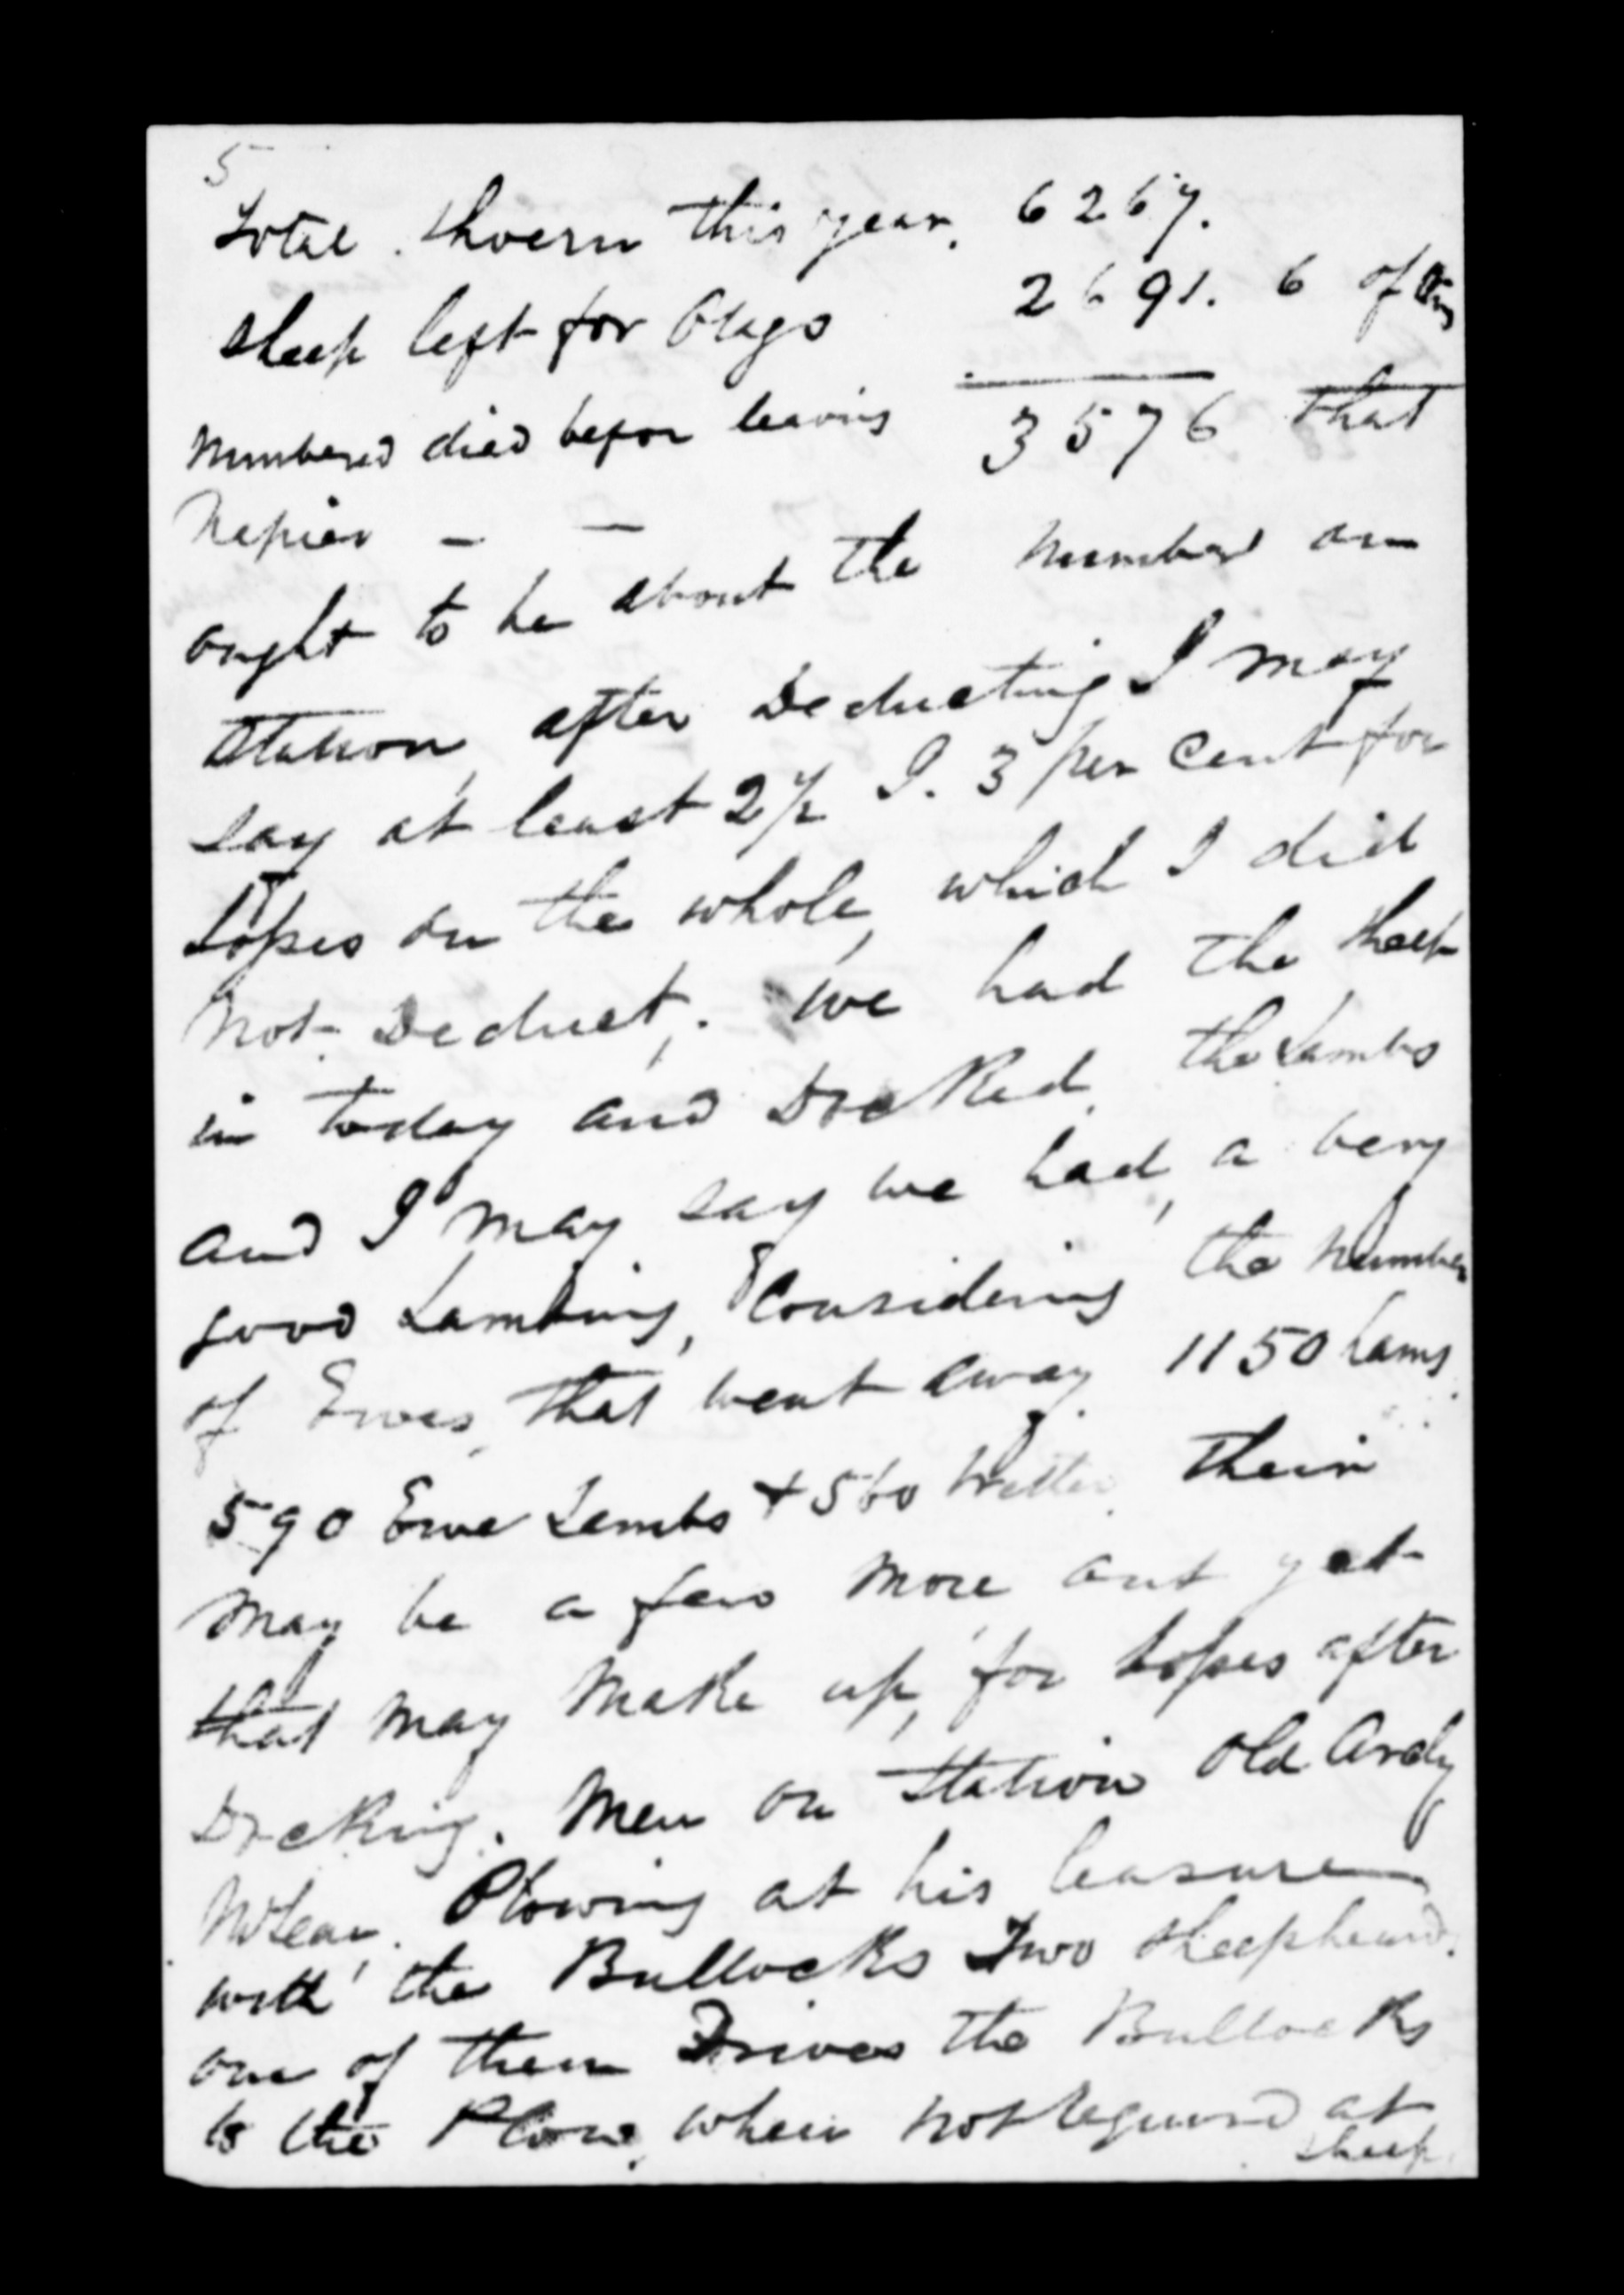 5
Total Shoern this year, 6267.
sheep left for Otago 2691. 6 of this
numbered died befor leaving 3576 that
Napier - -
ought to be about the number on
station, after Deducting I may
say at least 2½ I. 3 per cent for
losses on the whole, which I did
not Deduct. We had the sheep
in today and Docked the Lambs
and I may say we had, a very
good Lambing, Considering the number
of Ewes, that went away 1150 Lams
590 Ewe Lambs + 560 Wether their
may be a few more out yet
that may make up, for losses after
Docking. Men on station old Andy
McLean. Plowing at his leasure
with the Bullocks Two sheepheard.
one of them Drives the Bullocks
to the Plow, when not requird at
sheep.